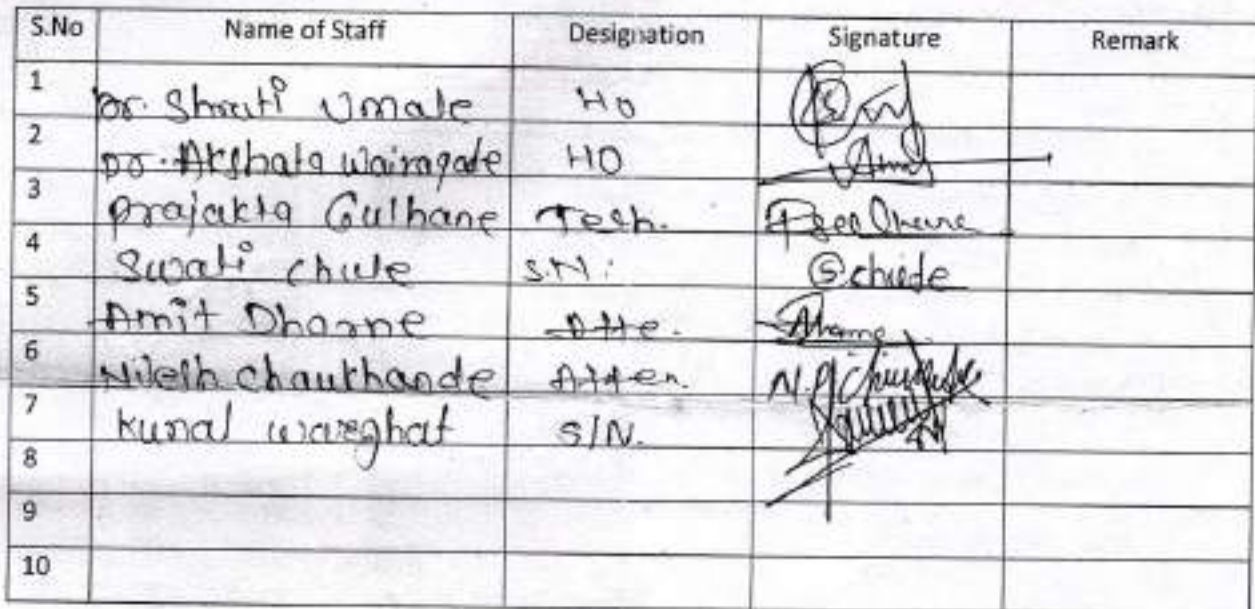 S.No Name of Staff Designation Signature Remark
1 Dr. Shruti Umale HO
2 Dr. Akshata Wairagade HO
3 Prajakta Gulhane Tech.
4 Swati Chule S.N. Schude
5 Amit Dharne Atte. Dharne
6 Nilesh Chaukhande Atten.
7 Kunal Wareghat S/N.
8
9
10